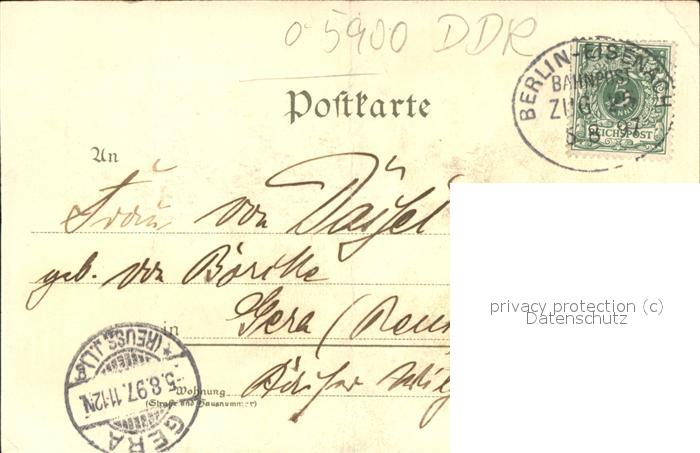 o 5900 DDR
BERLIN-EISENACH
BAHNPOST
ZUG
5 8 97
5
REICHSPOST
Postkarte
An
Frau von
geb. von
in Gera (Reu
privacy protection (c)
Datenschutz
Wohnung
(Straße und Hausnummer)
GERA
* (REUSS J.L.) *
5.8.97. 11-12N.